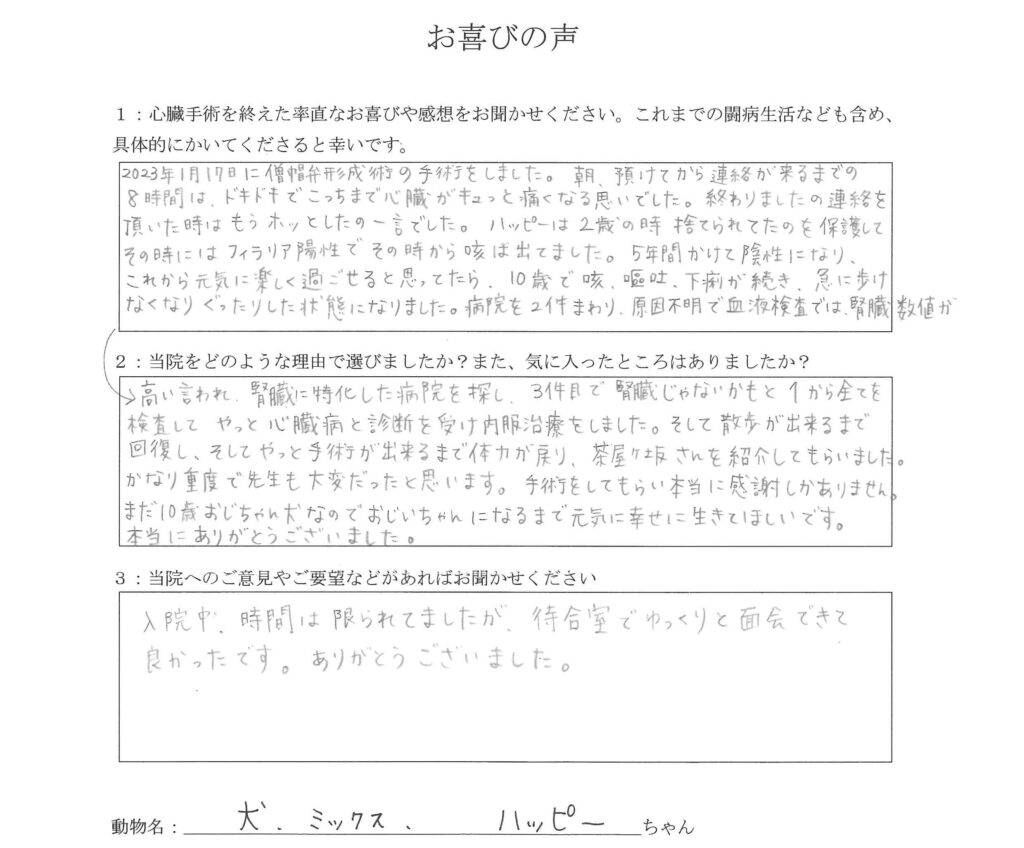 お喜びの声
１：心臓手術を終えた率直なお喜びや感想をお聞かせください。これまでの闘病生活なども含め、
具体的にかいてくださると幸いです。
2023年1月17日に僧帽弁形成術の手術をしました。朝、預けてから連絡が来るまでの
8時間は、ドキドキでこっちまで心臓がキュッと痛くなる思いでした。終わりましたの連絡を
頂いた時はもうホッとしたの一言でした。ハッピーは2歳の時捨てられてたのを保護して
その時にはフィラリア陽性でその時から咳は出てました。5年間かけて陰性になり、
これから元気に楽しく過ごせると思ってたら、10歳で咳、嘔吐、下痢が続き、急に歩け
なくなりぐったりした状態になりました。病院を2件まわり、原因不明で血液検査では、腎臓数値が
２：当院をどのような理由で選びましたか？また、気に入ったところはありましたか？
→高い言われ、腎臓に特化した病院を探し、3件目で腎臓じゃないかもと1から全てを
検査してやっと心臓病と診断を受け内服治療をしました。そして散歩が出来るまで
回復し、そしてやっと手術が出来るまで体力が戻り、茶屋ヶ坂さんを紹介してもらいました。
かなり重度で先生も大変だったと思います。手術をしてもらい本当に感謝しかありません。
まだ10歳おじちゃん犬なのでおじいちゃんになるまで元気に幸せに生きてほしいです。
本当にありがとうございました。
３：当院へのご意見やご要望などがあればお聞かせください
入院中、時間は限られてましたが、待合室でゆっくりと面会できて
良かったです。ありがとうございました。
動物名：犬、ミックス、ハッピーちゃん